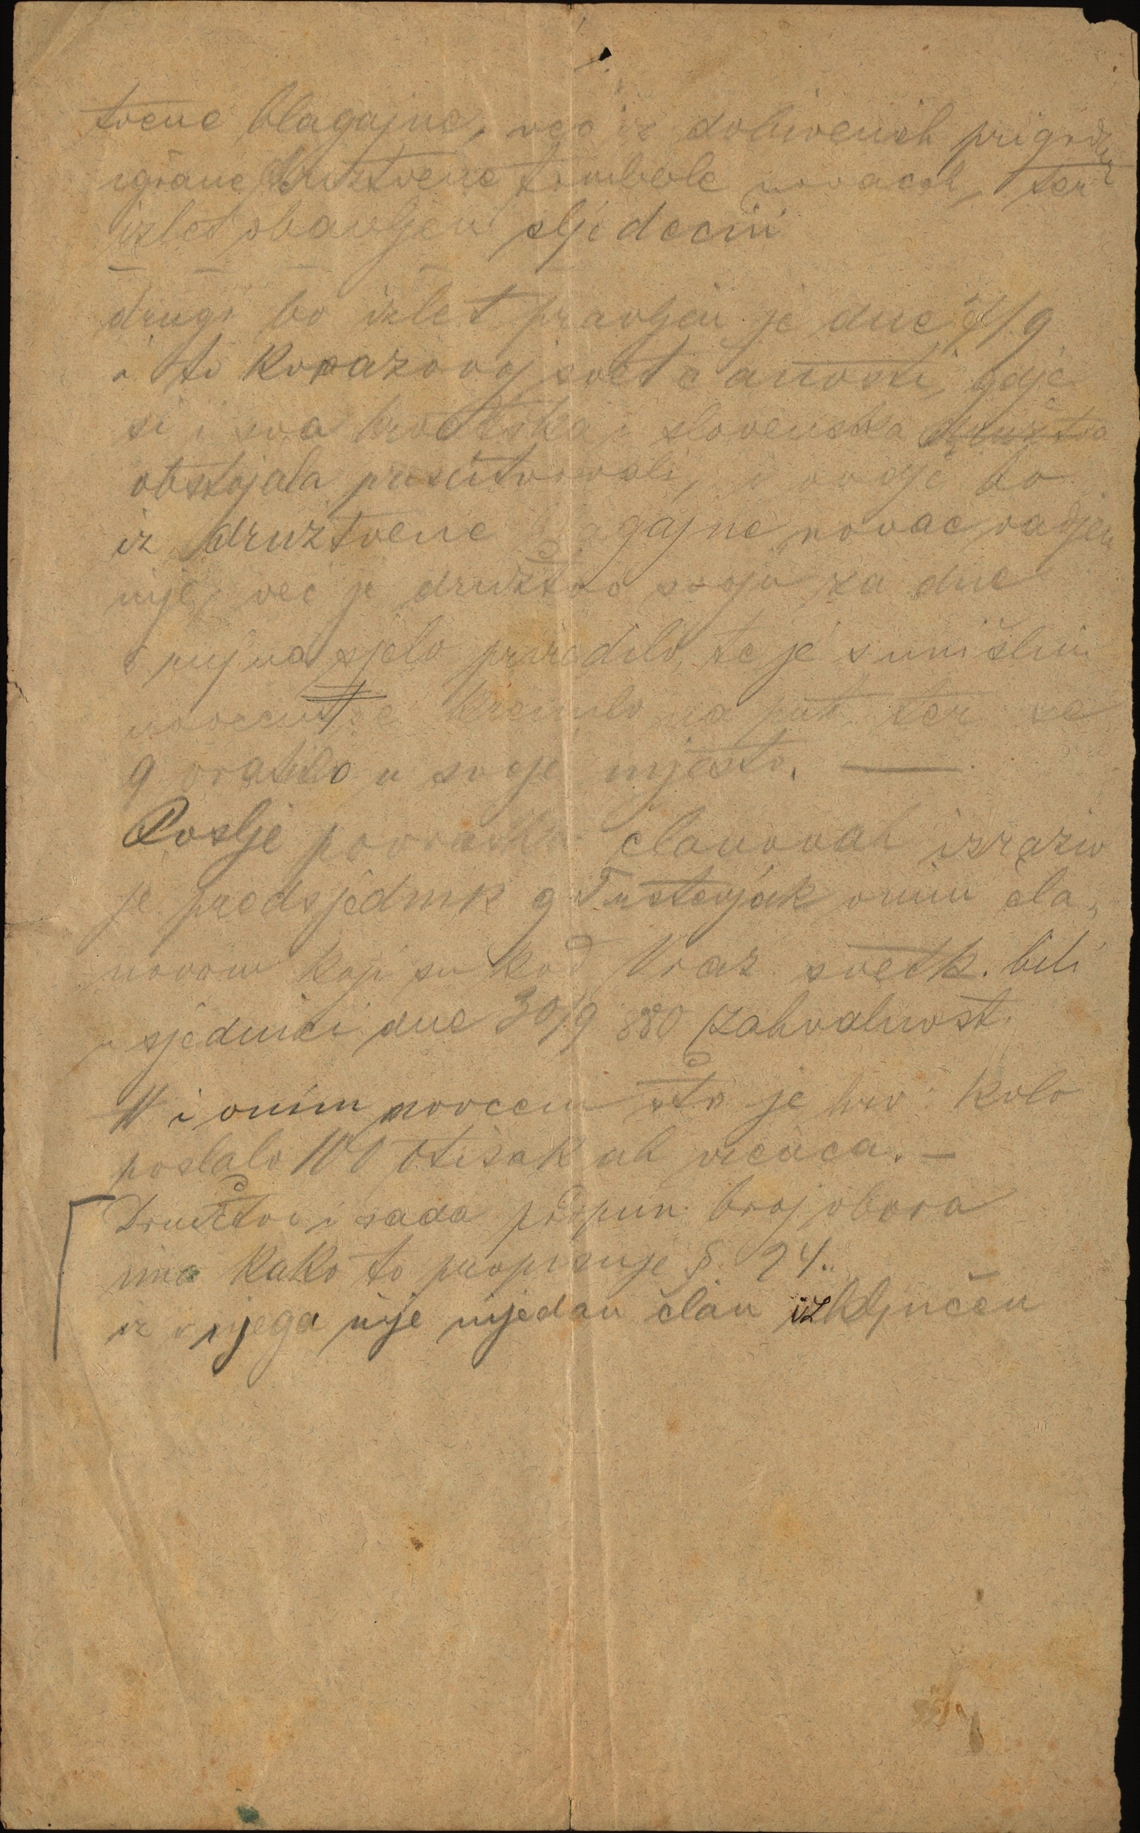 tvene blagajne, već iz dobivenih prigodom
igrane družtvene tombole novacah, ter
izlet obavljen sljedećni
drugi bo izlet pravljen je dne 7/9
i to k vrazovoj svetčanosti, gdje
si i sva hrvatska i slovenska družtva
obstojala prisustvovali, i ovdje bo
iz družtvene blagajne novac vadjen
nije, već je družtvo svoju za dne
rujna sjelo priredilo, te je s
novcem krenulo na put ter se
9 vratilo u svoje mjesto. —
Poslje povratka članovah izrazio
je predsjednik g Trstenjak onim čla-
novom koji su kod Vraz. svetk. bili
u sjednici dne 30/9 880 zahvalnost.
i onim novcem što je kolo
poslalo 100 otisakah —
Družtvo i sada podpun broj obora
ima kako to propisuje §. 24.
iz njega nije nijedan član izključen